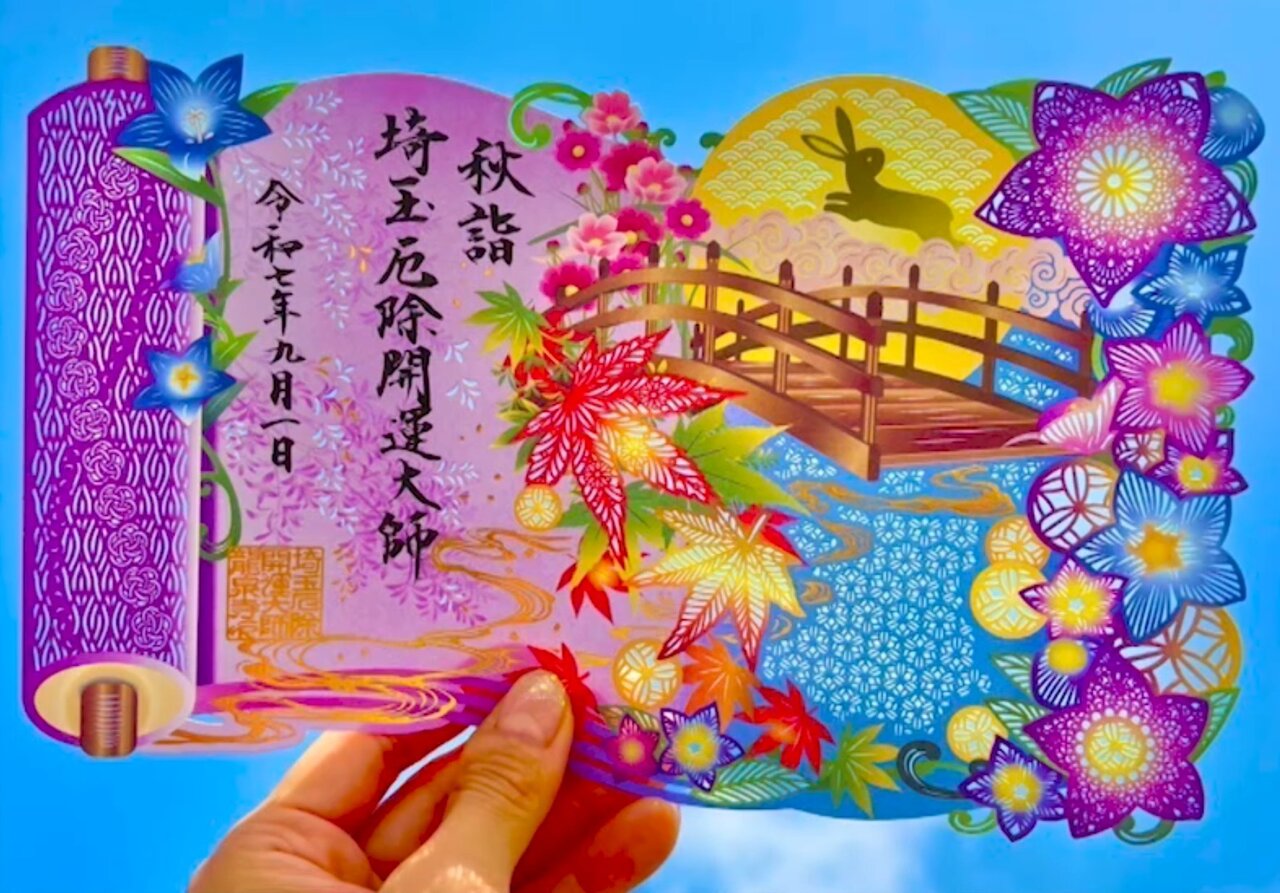 秋詣
埼玉厄除開運大師
令和七年九月一日
埼玉厄除
開運大師
龍泉寺之印